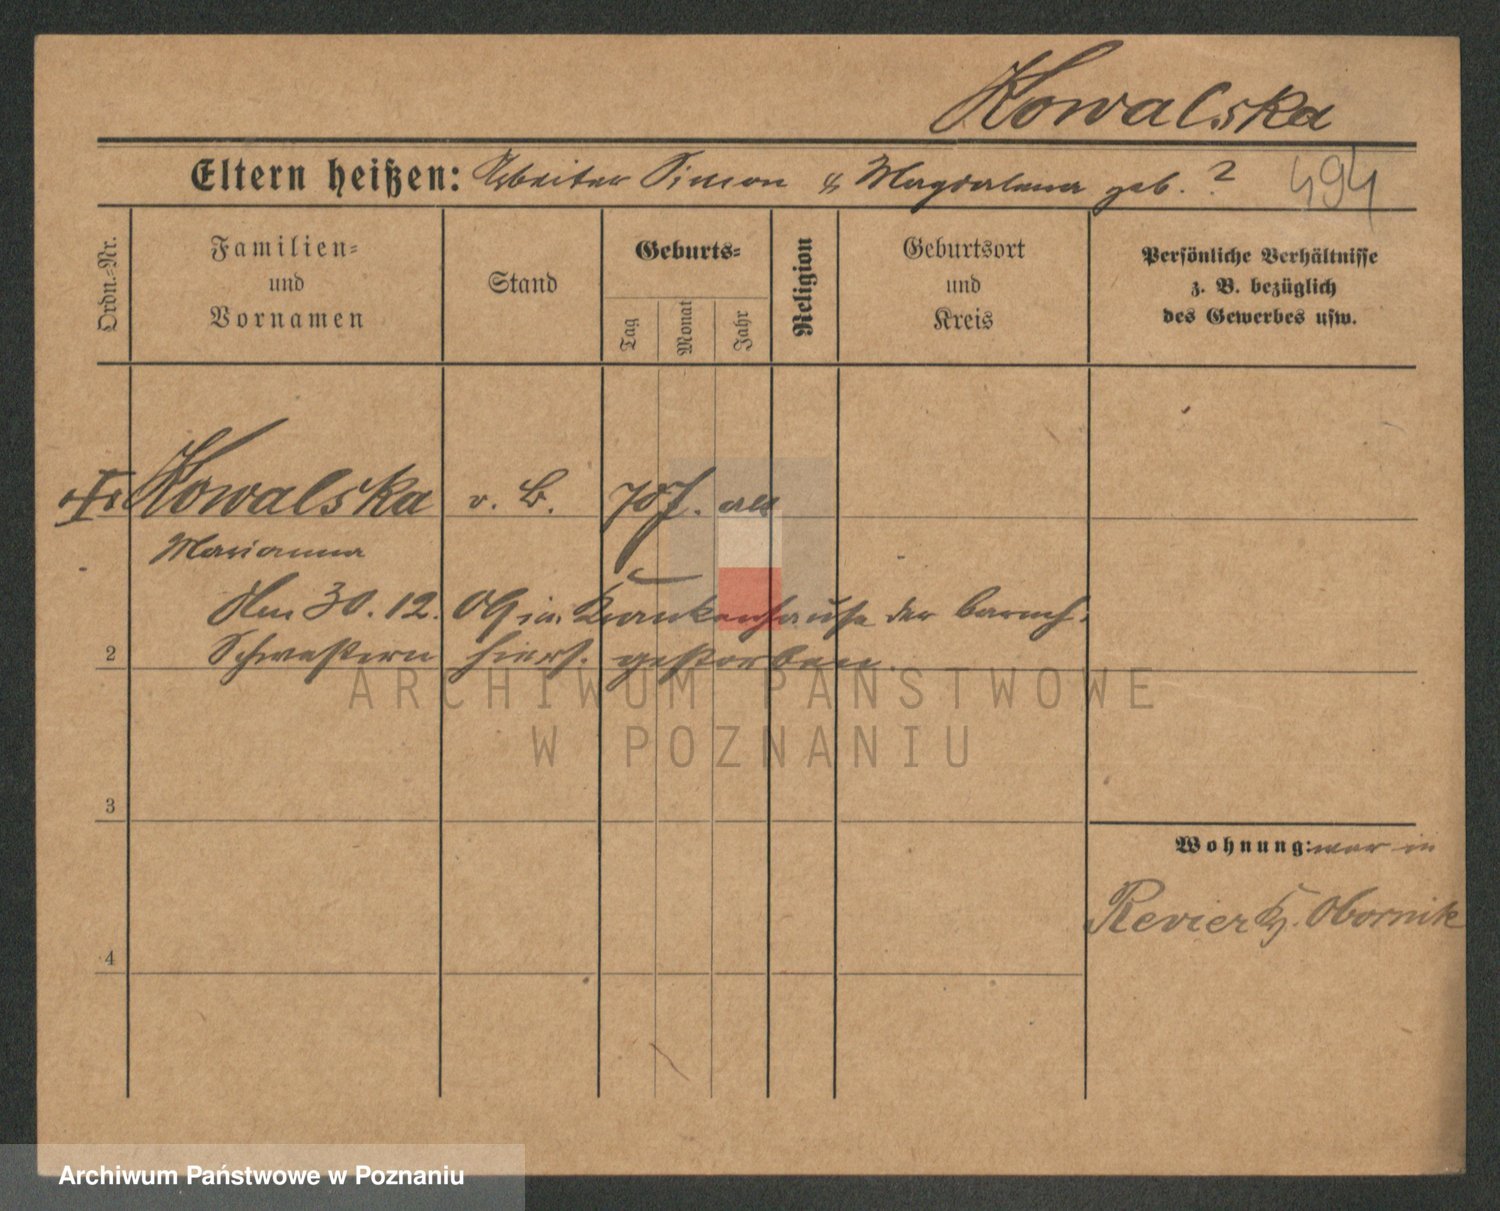 Kowalska
Eltern heißen: Arbeiter Simon & Magdalena geb. ?
494
Ordn.-Nr.
Familien-
und
Vornamen
Stand
Geburts-
Tag
Monat
Jahr
Religion
Geburtsort
und
Kreis
Persönliche Verhältnisse
z. B. bezüglich
des Gewerbes usw.
Kowalska v. B. 70 J. alt
Marianna
Am 30. 12. 09 im Krankenhause der barmh.
2 Schwestern hiers. gestorben.
ARCHIWUM PAŃSTWOWE
W POZNANIU
3
Wohnung: war in
Revier Kr. Obornik
4
Archiwum Państwowe w Poznaniu